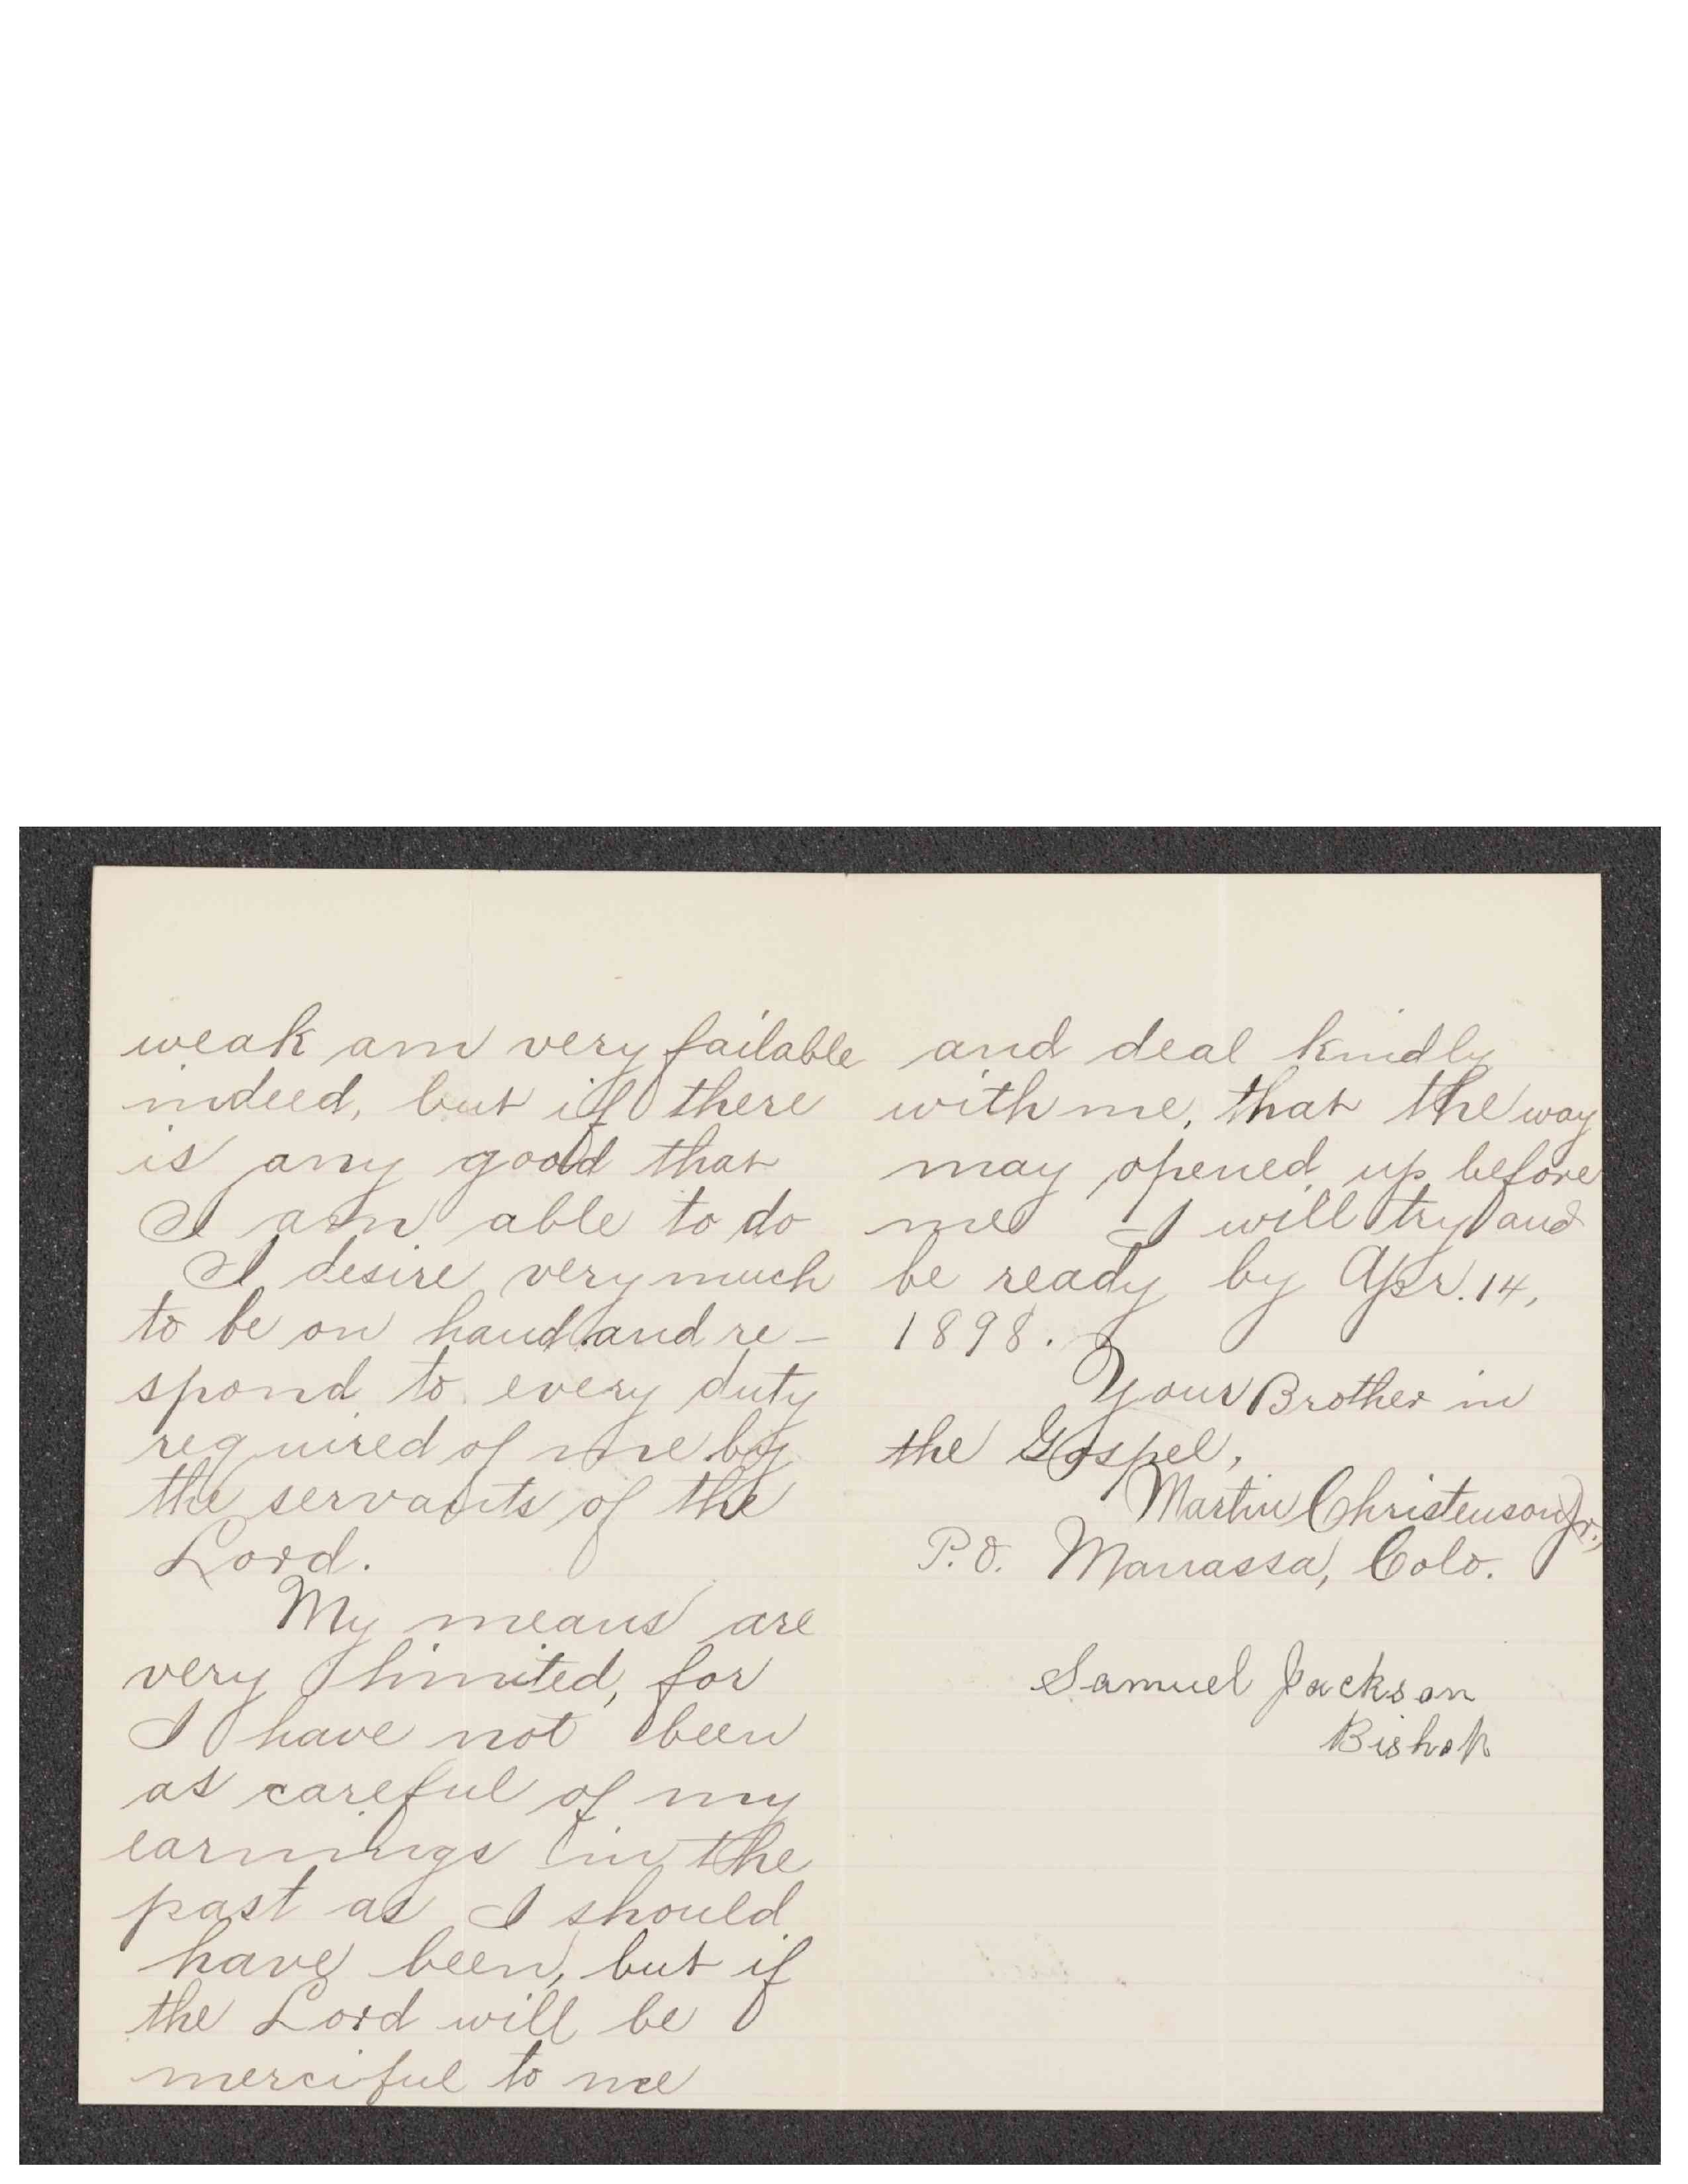 weak am very failable
indeed, but if there
is any good that
I am able to do
I desire very much
to be on hand and re-
spond to every duty
required of me by
the servants of the
Lord.
My means are
very limited, for
I have not been
as careful of my
earnings in the
past as I should
have been, but if
the Lord will be
merciful to me
and deal kindly
with me, that the way
may opened up before
me I will try and
be ready by Apr. 14,
1898.
Your Brother in
the Gospel,
Martin Christenson Jr.,
P.O. Manassa, Colo.
Samuel Jackson
Bishop